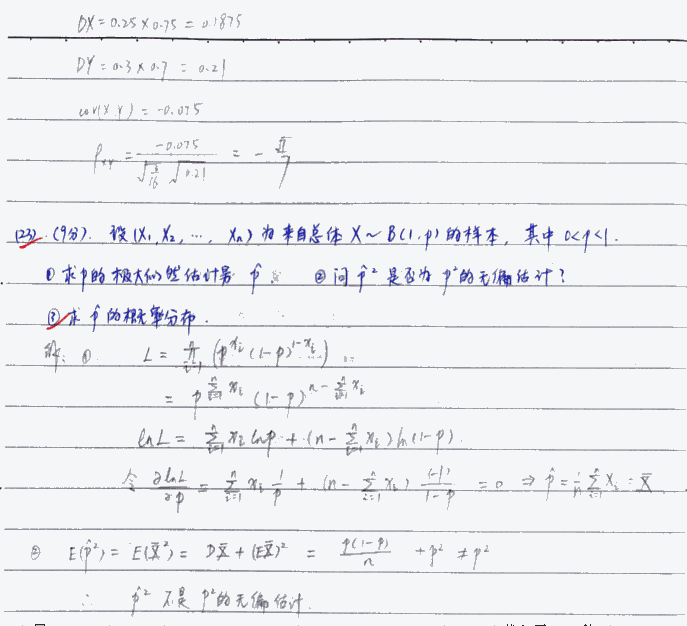 DX = 0.25 × 0.75 = 0.1875
DY = 0.3 × 0.7 = 0.21
cov(X Y) = -0.075
ρ_XY = -0.075 / (√(3/16) √0.21) = - √7/7
(23). (9分). 设 (X₁, X₂, …, Xₙ) 为来自总体 X ~ B(1, p) 的样本, 其中 0<p<1.
① 求p的极大似然估计量 p̂. ② 问 p̂² 是否为 p² 的无偏估计?
③ 求 p̂ 的概率分布.
解: ① L = ∏ᵢ₌₁ⁿ (p^{xᵢ} (1-p)^{1-xᵢ})
= p^{∑ᵢ₌₁ⁿ xᵢ} (1-p)^{n-∑ᵢ₌₁ⁿ xᵢ}
ln L = ∑ᵢ₌₁ⁿ xᵢ ln p + (n - ∑ᵢ₌₁ⁿ xᵢ) ln(1-p).
令 ∂lnL/∂p = ∑ᵢ₌₁ⁿ xᵢ 1/p + (n - ∑ᵢ₌₁ⁿ xᵢ) (-1)/(1-p) = 0 ⇒ p̂ = 1/n ∑ᵢ₌₁ⁿ Xᵢ = X̄
② E(p̂²) = E(X̄²) = DX̄ + (EX̄)² = p(1-p)/n + p² ≠ p²
∴ p̂² 不是 p² 的无偏估计.